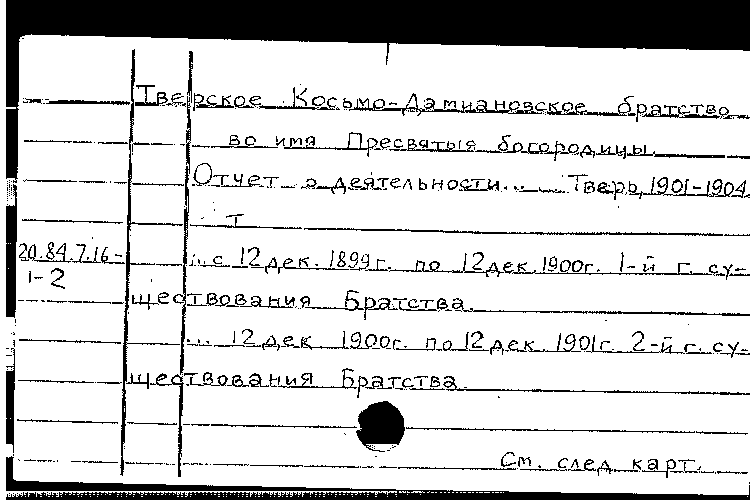 Тверское Косьмо-Дамиановское братство
во имя Пресвятыя богородицы.
Отчет о деятельности... Тверь, 1901-1904.
т
20.84.7.16-
1-2
... с 12 дек. 1899 г. по 12 дек. 1900г. 1-й г. су-
ществования Братства.
... 12 дек 1900г. по 12 дек. 1901г. 2-й г. су-
ществования Братства.
См. след карт.